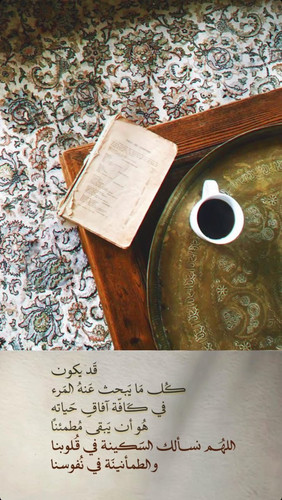 قَد يكون
كُل مَا يَبحث عَنهُ المَرء
في كَافّة آفاقِ حَياته
هُو أن يَبقى مُطمئنًا
اللهُم نسألك السَكينة في قُلوبنا
والطمأنينَة في نُفوسنا